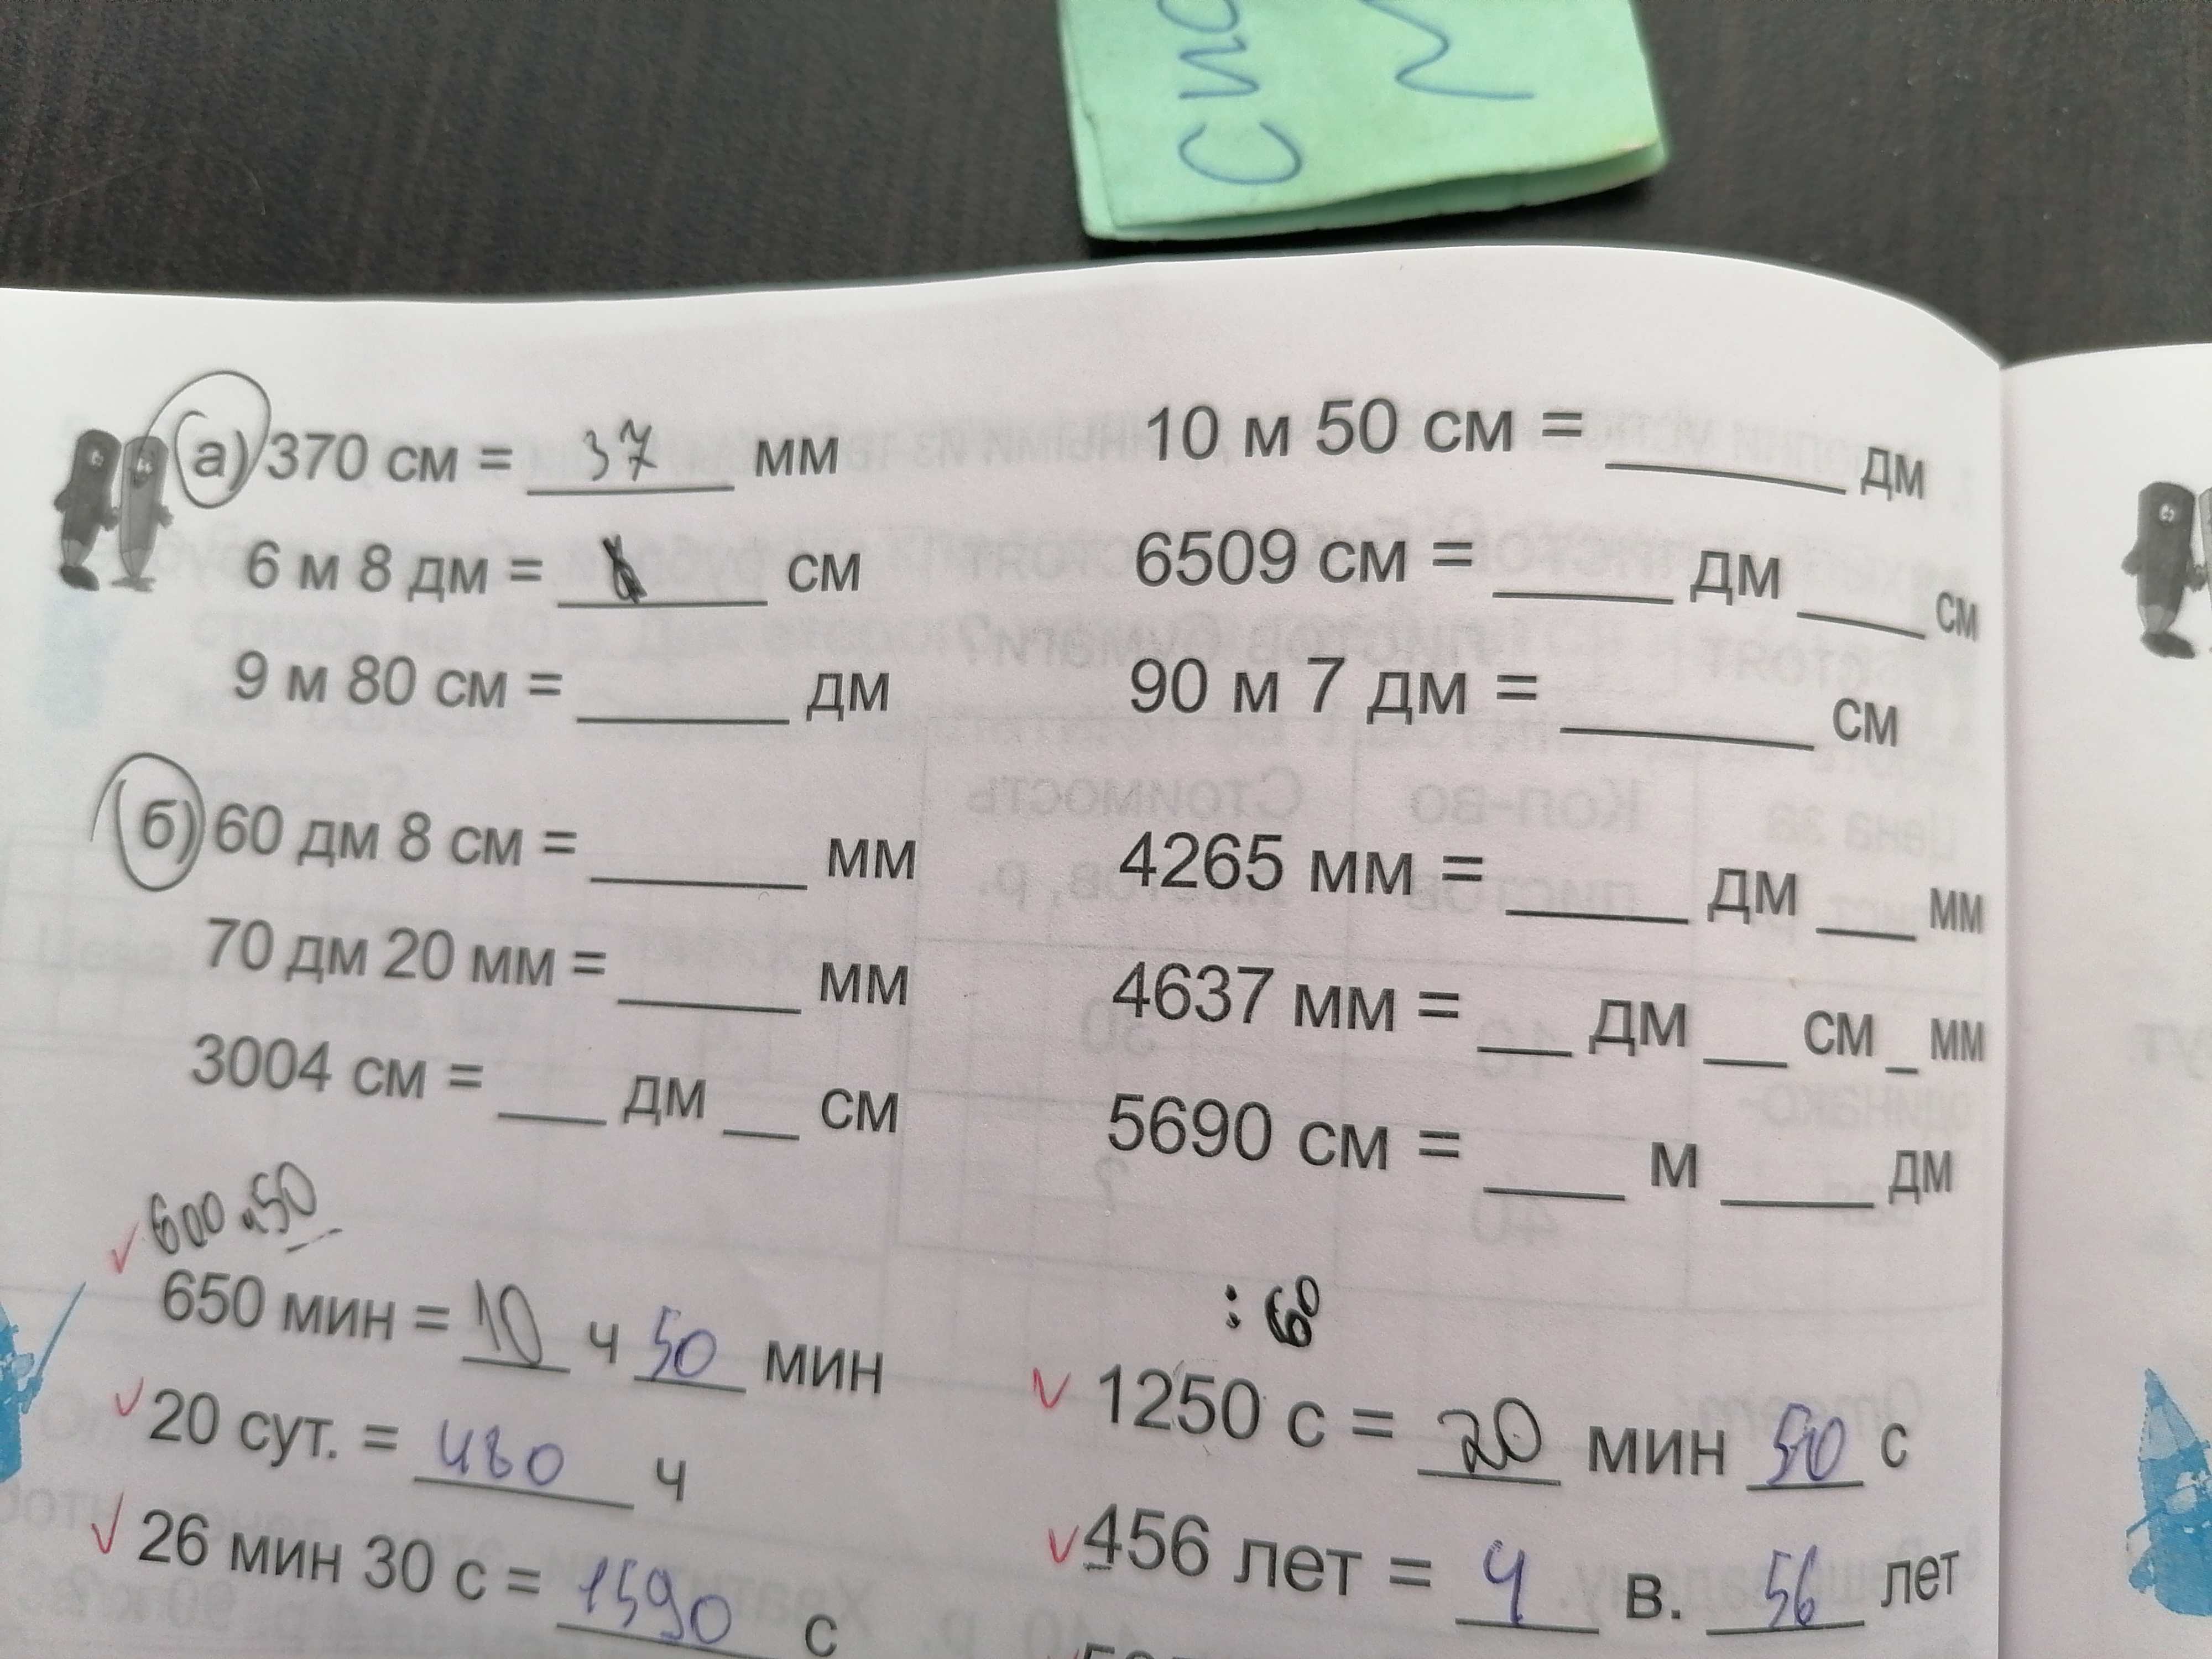 спо
а) 370 см = 37 мм
6 м 8 дм = ____ см
9 м 80 см = ____ дм
10 м 50 см = ____ дм
6509 см = ____ дм ____ см
90 м 7 дм = ____ см
б) 60 дм 8 см = ____ мм
70 дм 20 мм = ____ мм
3004 см = ____ дм ____ см
4265 мм = ____ дм ____ мм
4637 мм = ____ дм ____ см _ мм
5690 см = ____ м ____ дм
600 50
650 мин = 10 ч 50 мин
20 сут. = 480 ч
26 мин 30 с = 1590 с
: 60
1250 с = 20 мин 50 с
456 лет = 4 в. 56 лет